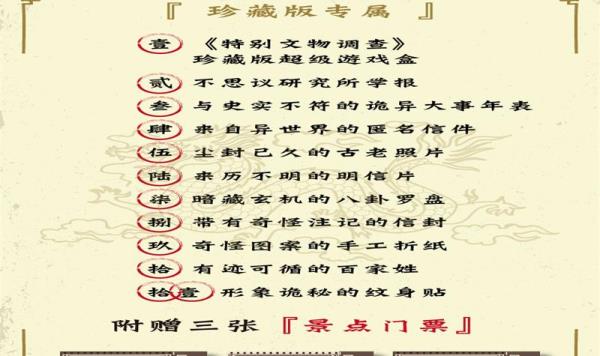 『 珍藏版专属 』
壹 《特别文物调查》
珍藏版超级游戏盒
贰 不思议研究所学报
叁 与史实不符的诡异大事年表
肆 来自异世界的匿名信件
伍 尘封已久的古老照片
陆 来历不明的明信片
柒 暗藏玄机的八卦罗盘
捌 带有奇怪注记的信封
玖 奇怪图案的手工折纸
拾 有迹可循的百家姓
拾壹 形象诡秘的纹身贴
附赠三张『景点门票』